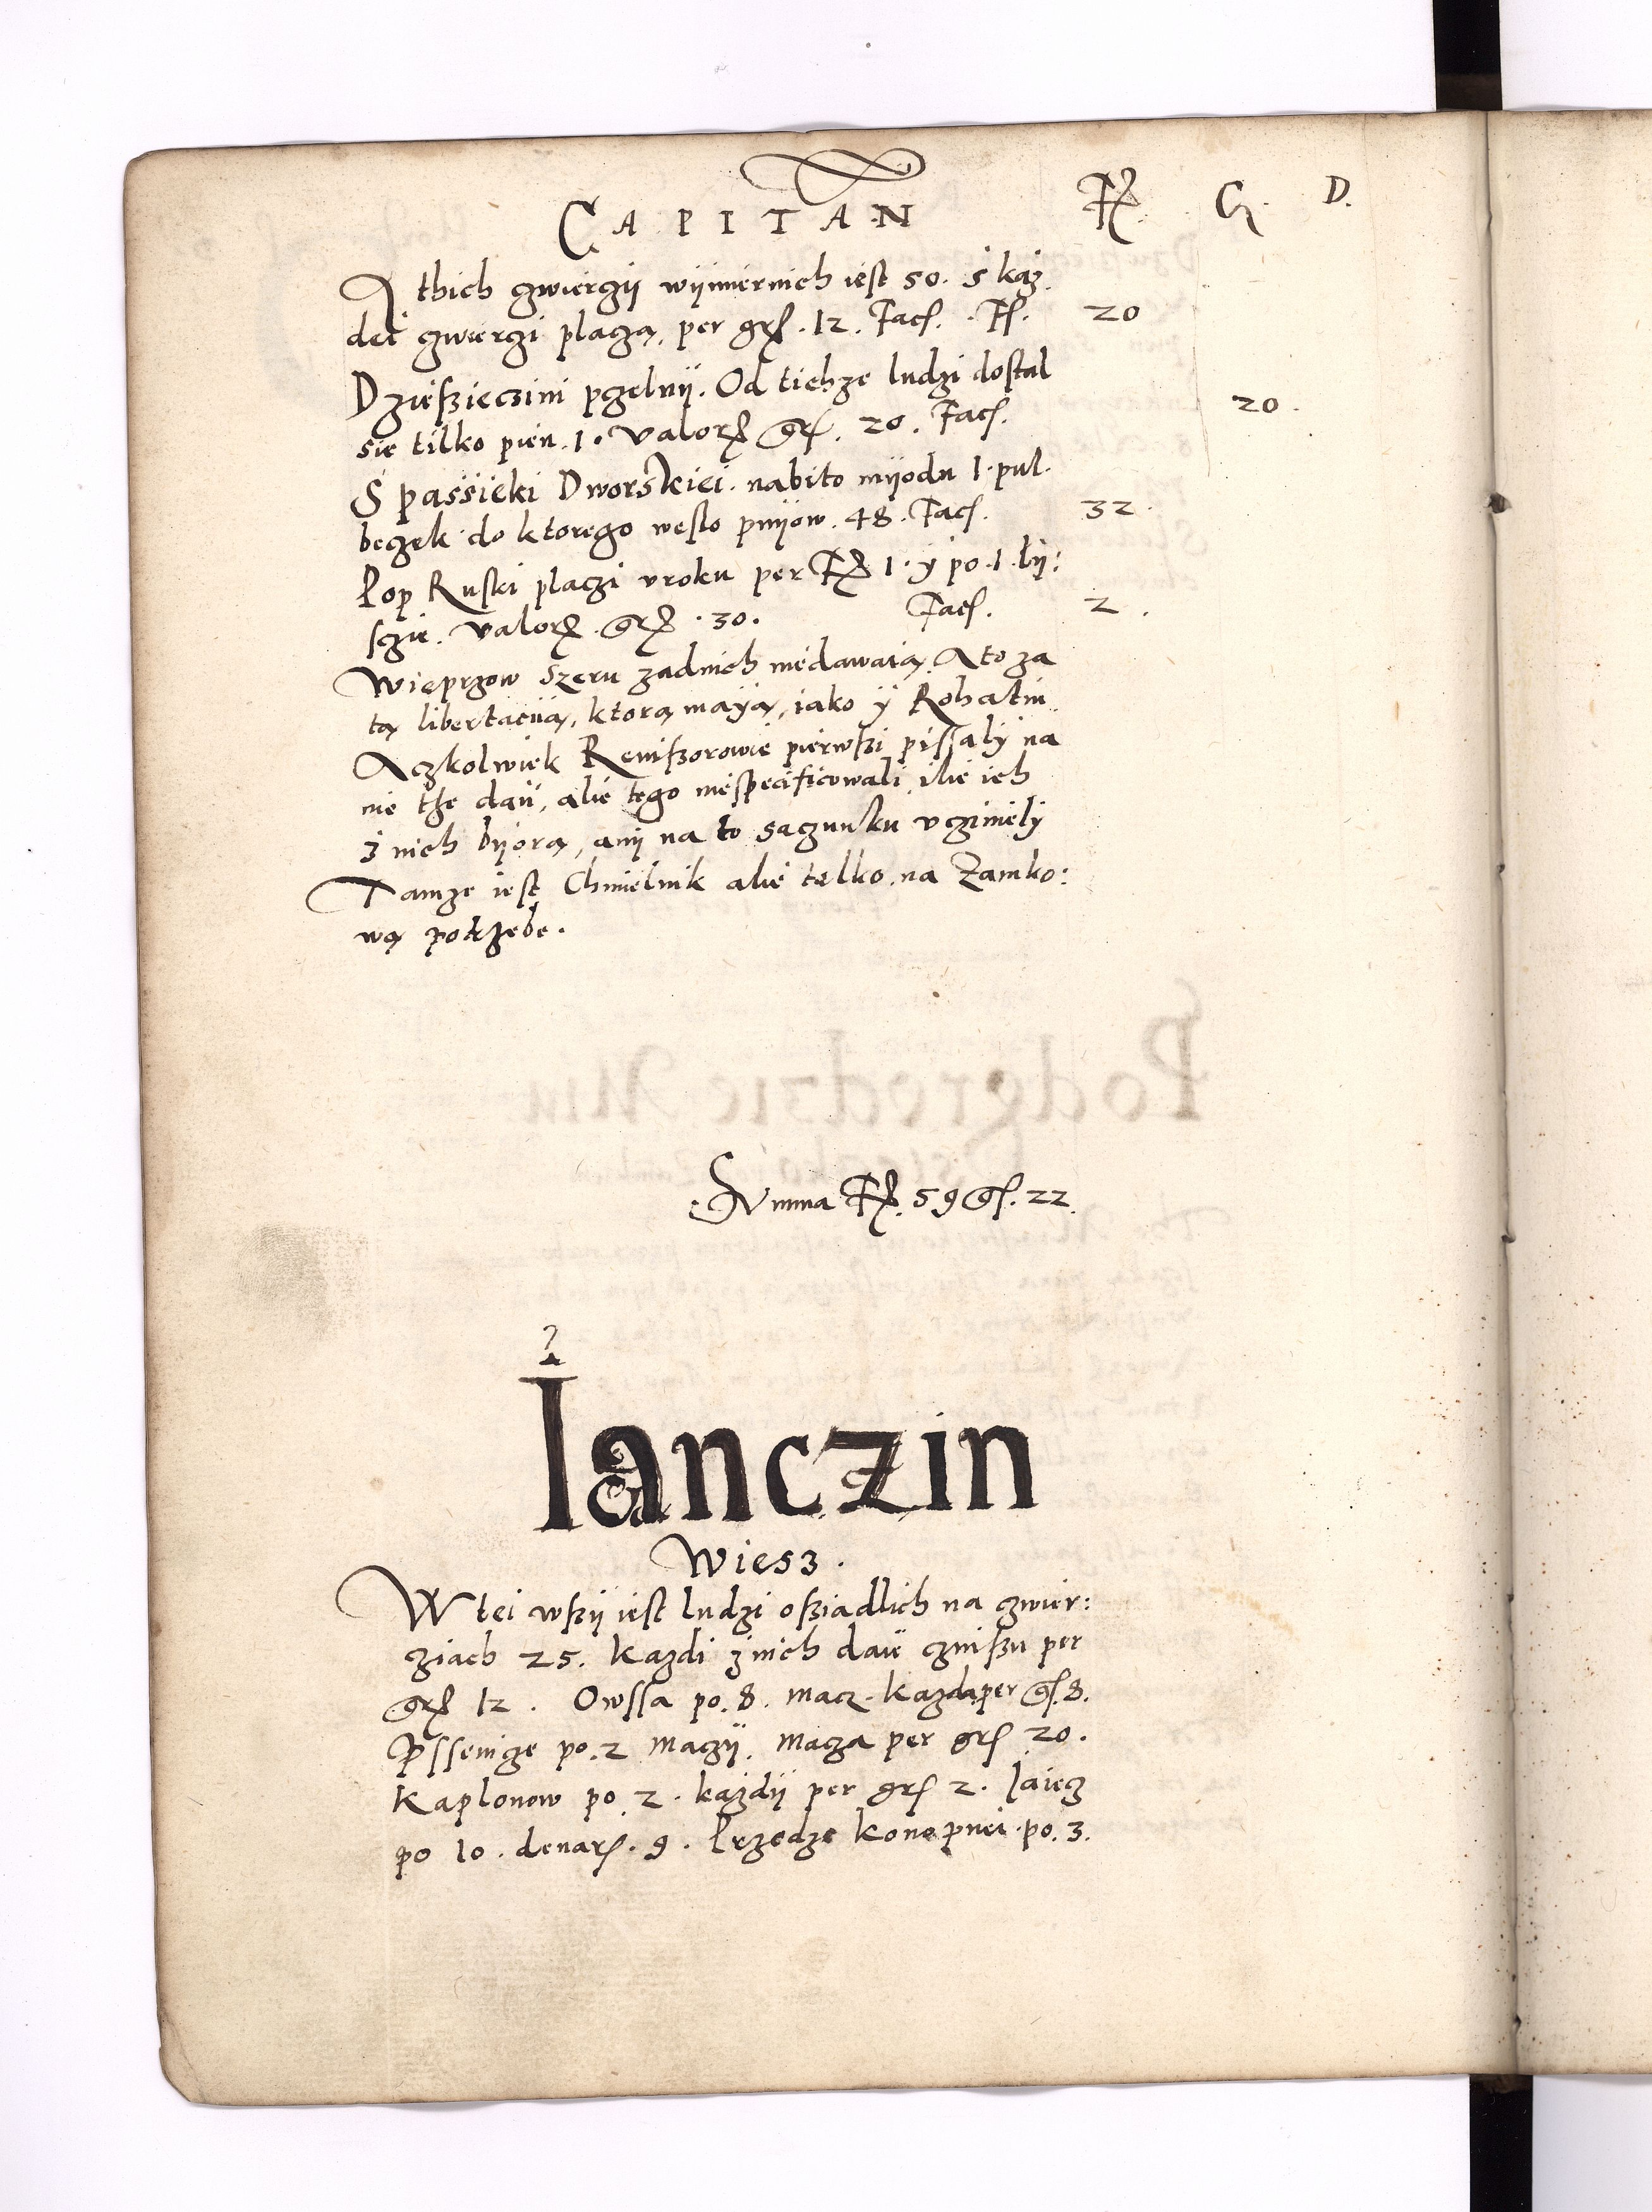 CAPITAN Fl. G. D.
A thich czwierczij wijmiernich iest 50. s kaz
dei czwierczi placzą, per grs. 12. Facs. Fl. 20
Dziesziecsini pczelnij. Od tichze ludzi dostal
sie tilko pien. 1. valors grs. 20. Facs. 20.
S passieki Dworskiei nabito myodu 1. pul.
beczek do ktorego weslo pnijow. 48. Facs. 32.
Pop Ruski placzi vroku per Fl 1. y po. 1. lij:
sczie. valors. grs. 30. Facs. 2.
Wieprzow szeru zadnich niedawaią. A to za
tą libertacijią, ktorą mayą, iako y Rohatin
Aczkolwiek Rewiszorowie pierwszi pissaly na
nie the dan, alie tego niespecificowali, ilie ich
z nich bijorą, anij na to saczunku vcziniely
Tamze iest Chmielnik alie telko na Zamko:
wą potrzebe.
Summa Fl. 59 gs. 22.
Ianczin
Wiesz.
W tei wszij iest ludzi osziadlich na czwier:
cziach 25. kazdi z nich daie czinszu per
grs 12. Owssa po. 8. macz. kazda per gs. 8.
Pssenicze po. 2 maczij. macza per grs 20.
Kaplonow po 2. kazdij per grs 2. Iaiecz
po 10. denars. 9. Przedze konopnei po. 3.